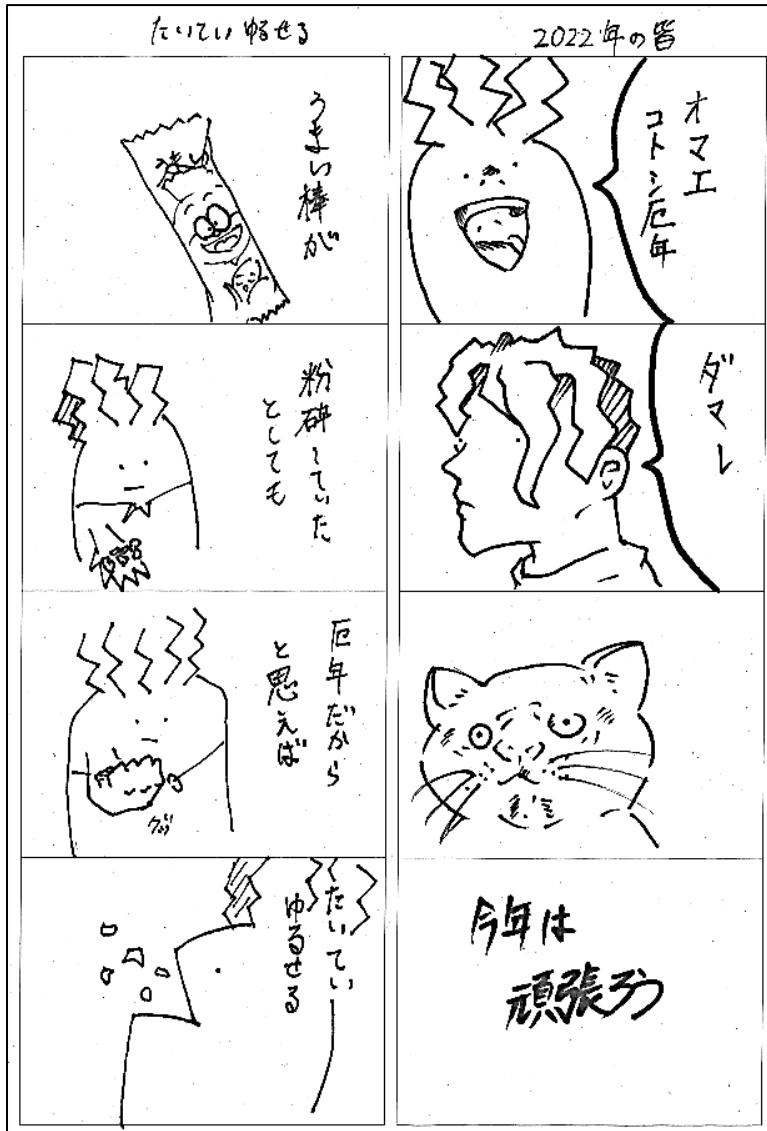 2022年の皆
オマエ
コトシ厄年
ダマレ
今年は
頑張ろう
たいていゆるせる
うまい棒が
粉砕していた
としても
厄年だから
と思えば
たいてい
ゆるせる